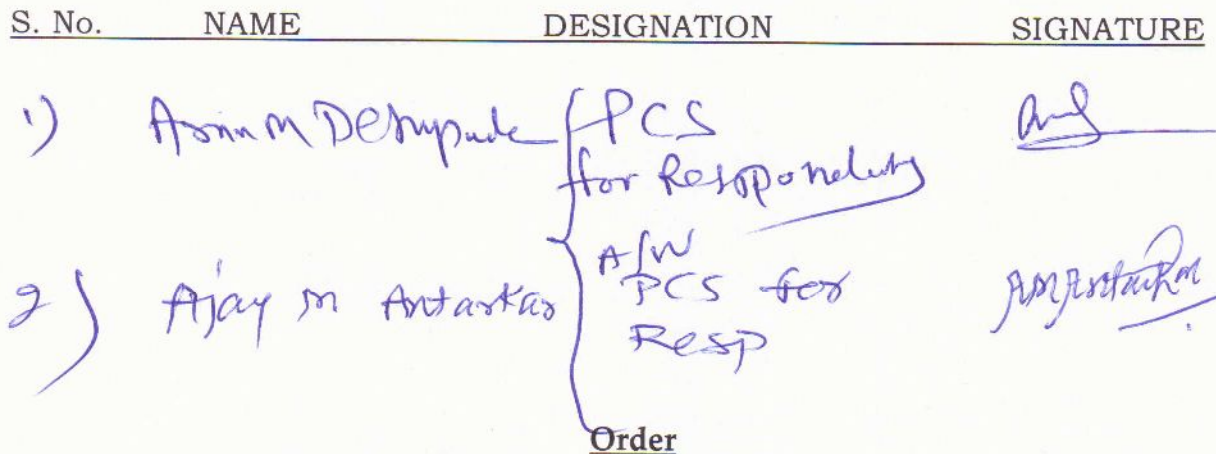 S. No. NAME DESIGNATION SIGNATURE
1) M Deshpande PCS
for Respondents
2) Ajay M Antarkar A/W
PCS for
Resp
AMAntarkar
Order